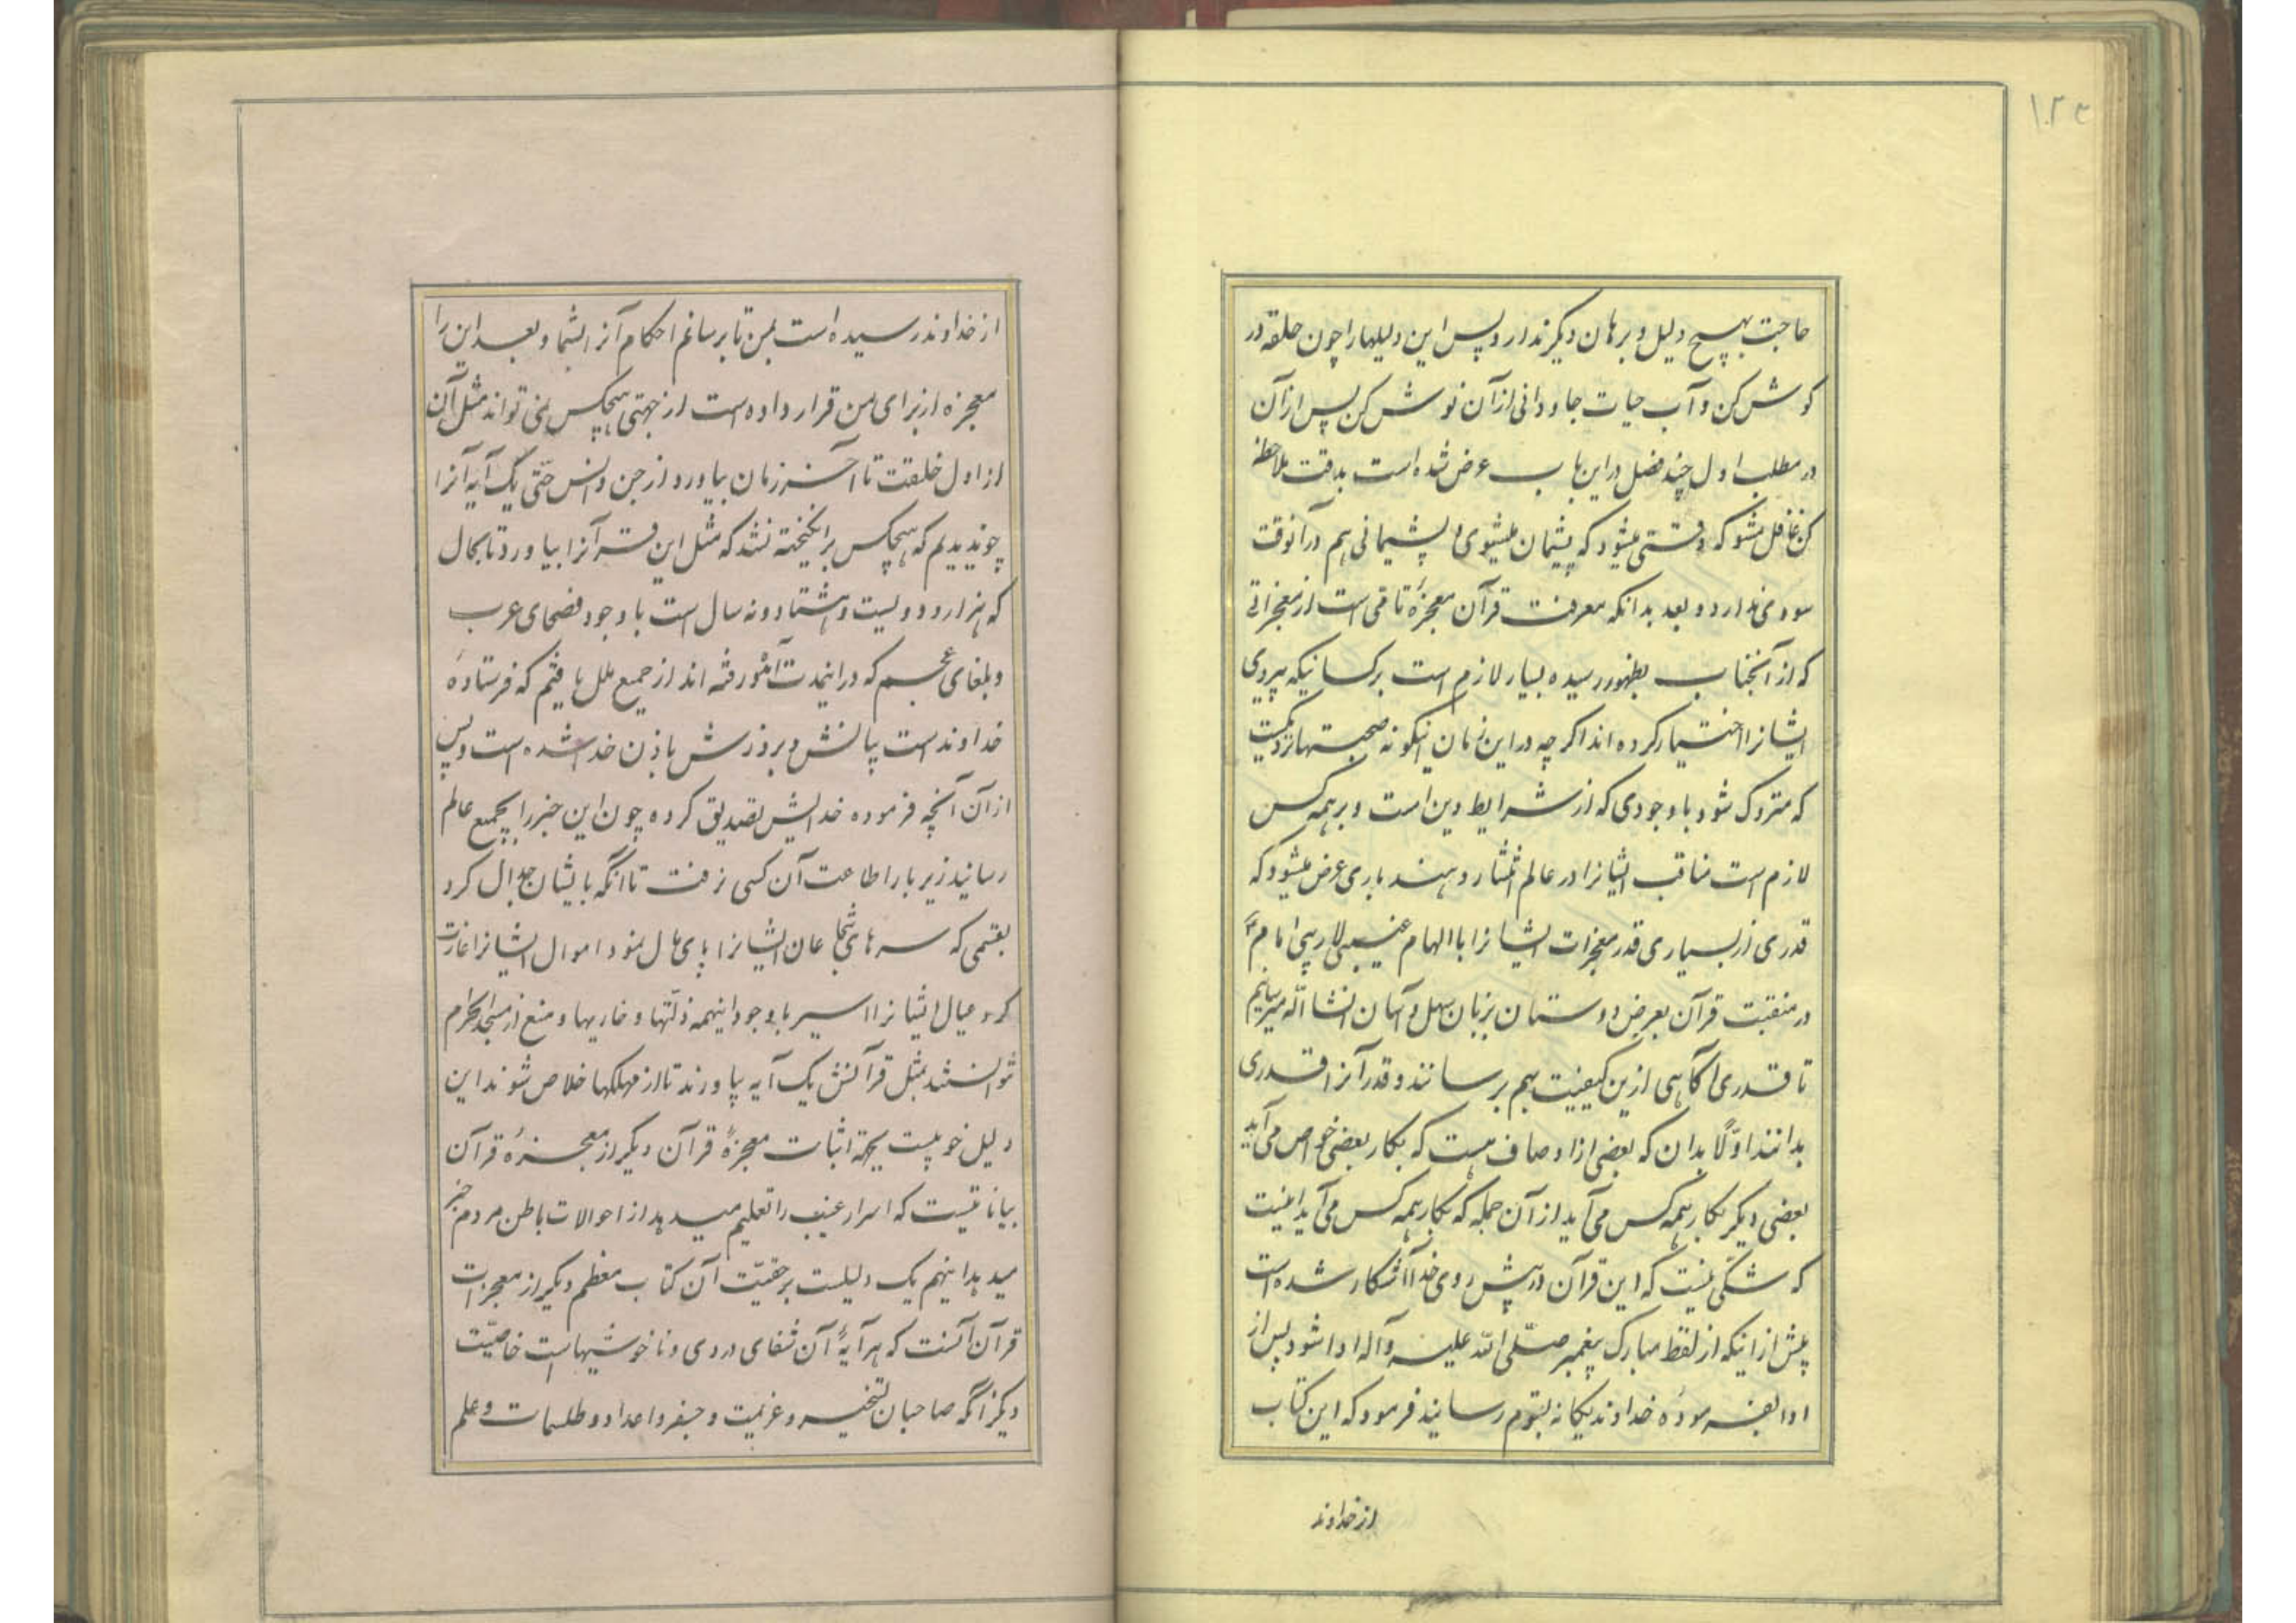 ۱۲۳
حاجت بهیچ دلیل و برهان دیگر ندارد پس این دلیلها را چون حلقه در
کوش کن و آب حیات جاودانی از آن نوش کن پس از آن
در مطلب اول چند فصل در این باب عرض شده است بدقت ملاحظه
کن غافل مشو که وقتی میشود که پشیمان میشوی و پشیمانی هم در آنوقت
سودی ندارد و بعد بدانکه معرفت قرآن معجزهٔ تامّی است از معجزاتی
که از آنجناب بظهور رسیده بسیار لازم است بر کسانیکه پیروی
ایشانرا اختیار کرده اند اکر چه در این زمان اینکونه صحبتها نزدیکست
که متروک شود با وجودی که از شرایط دین است و بر همه کس
لازم است مناقب ایشانرا در عالم انتشار دهند باری عرض میشود که
قدری از بسیاری قدر معجزات ایشانرا با الهام غیبی
در منقبت قرآن بعرض دوستان بزبان سهل و آسان انشاالله میرسانیم
تا قدری آکاهی ازین کیفیت بهم برسانند و قدر آنرا قدری
بدانند اوّلاً بدان که بعضی از اوصاف هست که بکار بعضی خواص می آید
بعضی دیکر بکار همه کس می آید از آن جمله که بکار همه کس می آید اینست
که شکّی نیست که این قرآن در پیش روی خدا آشکار شده است
پیش از اینکه از لفظ مبارک پیغمبر صلّی الله علیه وآله ادا شود پس از
ادا بفرمودهٔ خداوند یکانه بقوم رسانید فرمود که این کتاب
از خداوند
از خداوند رسیده است بمن تا برسانم احکام آنرا بشما و بعد این را
معجزه از برای من قرار داده است از جهتی هیچکس نمی تواند مثل آن
از اول خلقت تا آخر زمان بیاورد از جن و انس حتّی یک آیه آنرا
چو ندیدیم که هیچکس برانکیخته نشد که مثل این قرآنرا بیاورد تا بحال
که هزار و دویست و هشتاد و نه سال است با وجود فصحای عرب
و بلغای عجم که در اینمدت آمده و رفته اند از جمیع ملل یافتم که فرستادهٔ
خداوند است بیانش و بروزش باذن خدا شده است و پس
از آن آنچه فرموده خدایش تصدیق کرده چون این خبر را بجمیع عالم
رسانید زیر بار اطاعت آن کسی نرفت تا آنکه با ایشان جدال کرد
بقسمی که سرهای شجاعان ایشانرا پای مال نمود اموال ایشانرا غارت
کرد و عیال ایشانرا اسیر با وجود اینهمه ذلّتها و خاریها و منع از مسجدالحرام
نتوانستند بمثل قرآنش یک آیه بیاورند تا از مهلکها خلاص شوند این
دلیل خوبیست بجهة اثبات معجزهٔ قرآن دیکر از معجزهٔ قرآن
بیاناتیست که اسرار غیب را تعلیم میدهد از احوالات باطن مردم خبر
میدهد اینهم یک دلیلیست بر حقیّت آن کتاب معظم دیکر از معجزات
قرآن آنست که هر آیهٔ آن شفای دردی و ناخوشیهاست خاصیّت
دیکر آنکه صاحبان تسخیر و عزیمت و جفر و اعداد و طلسمات و علم